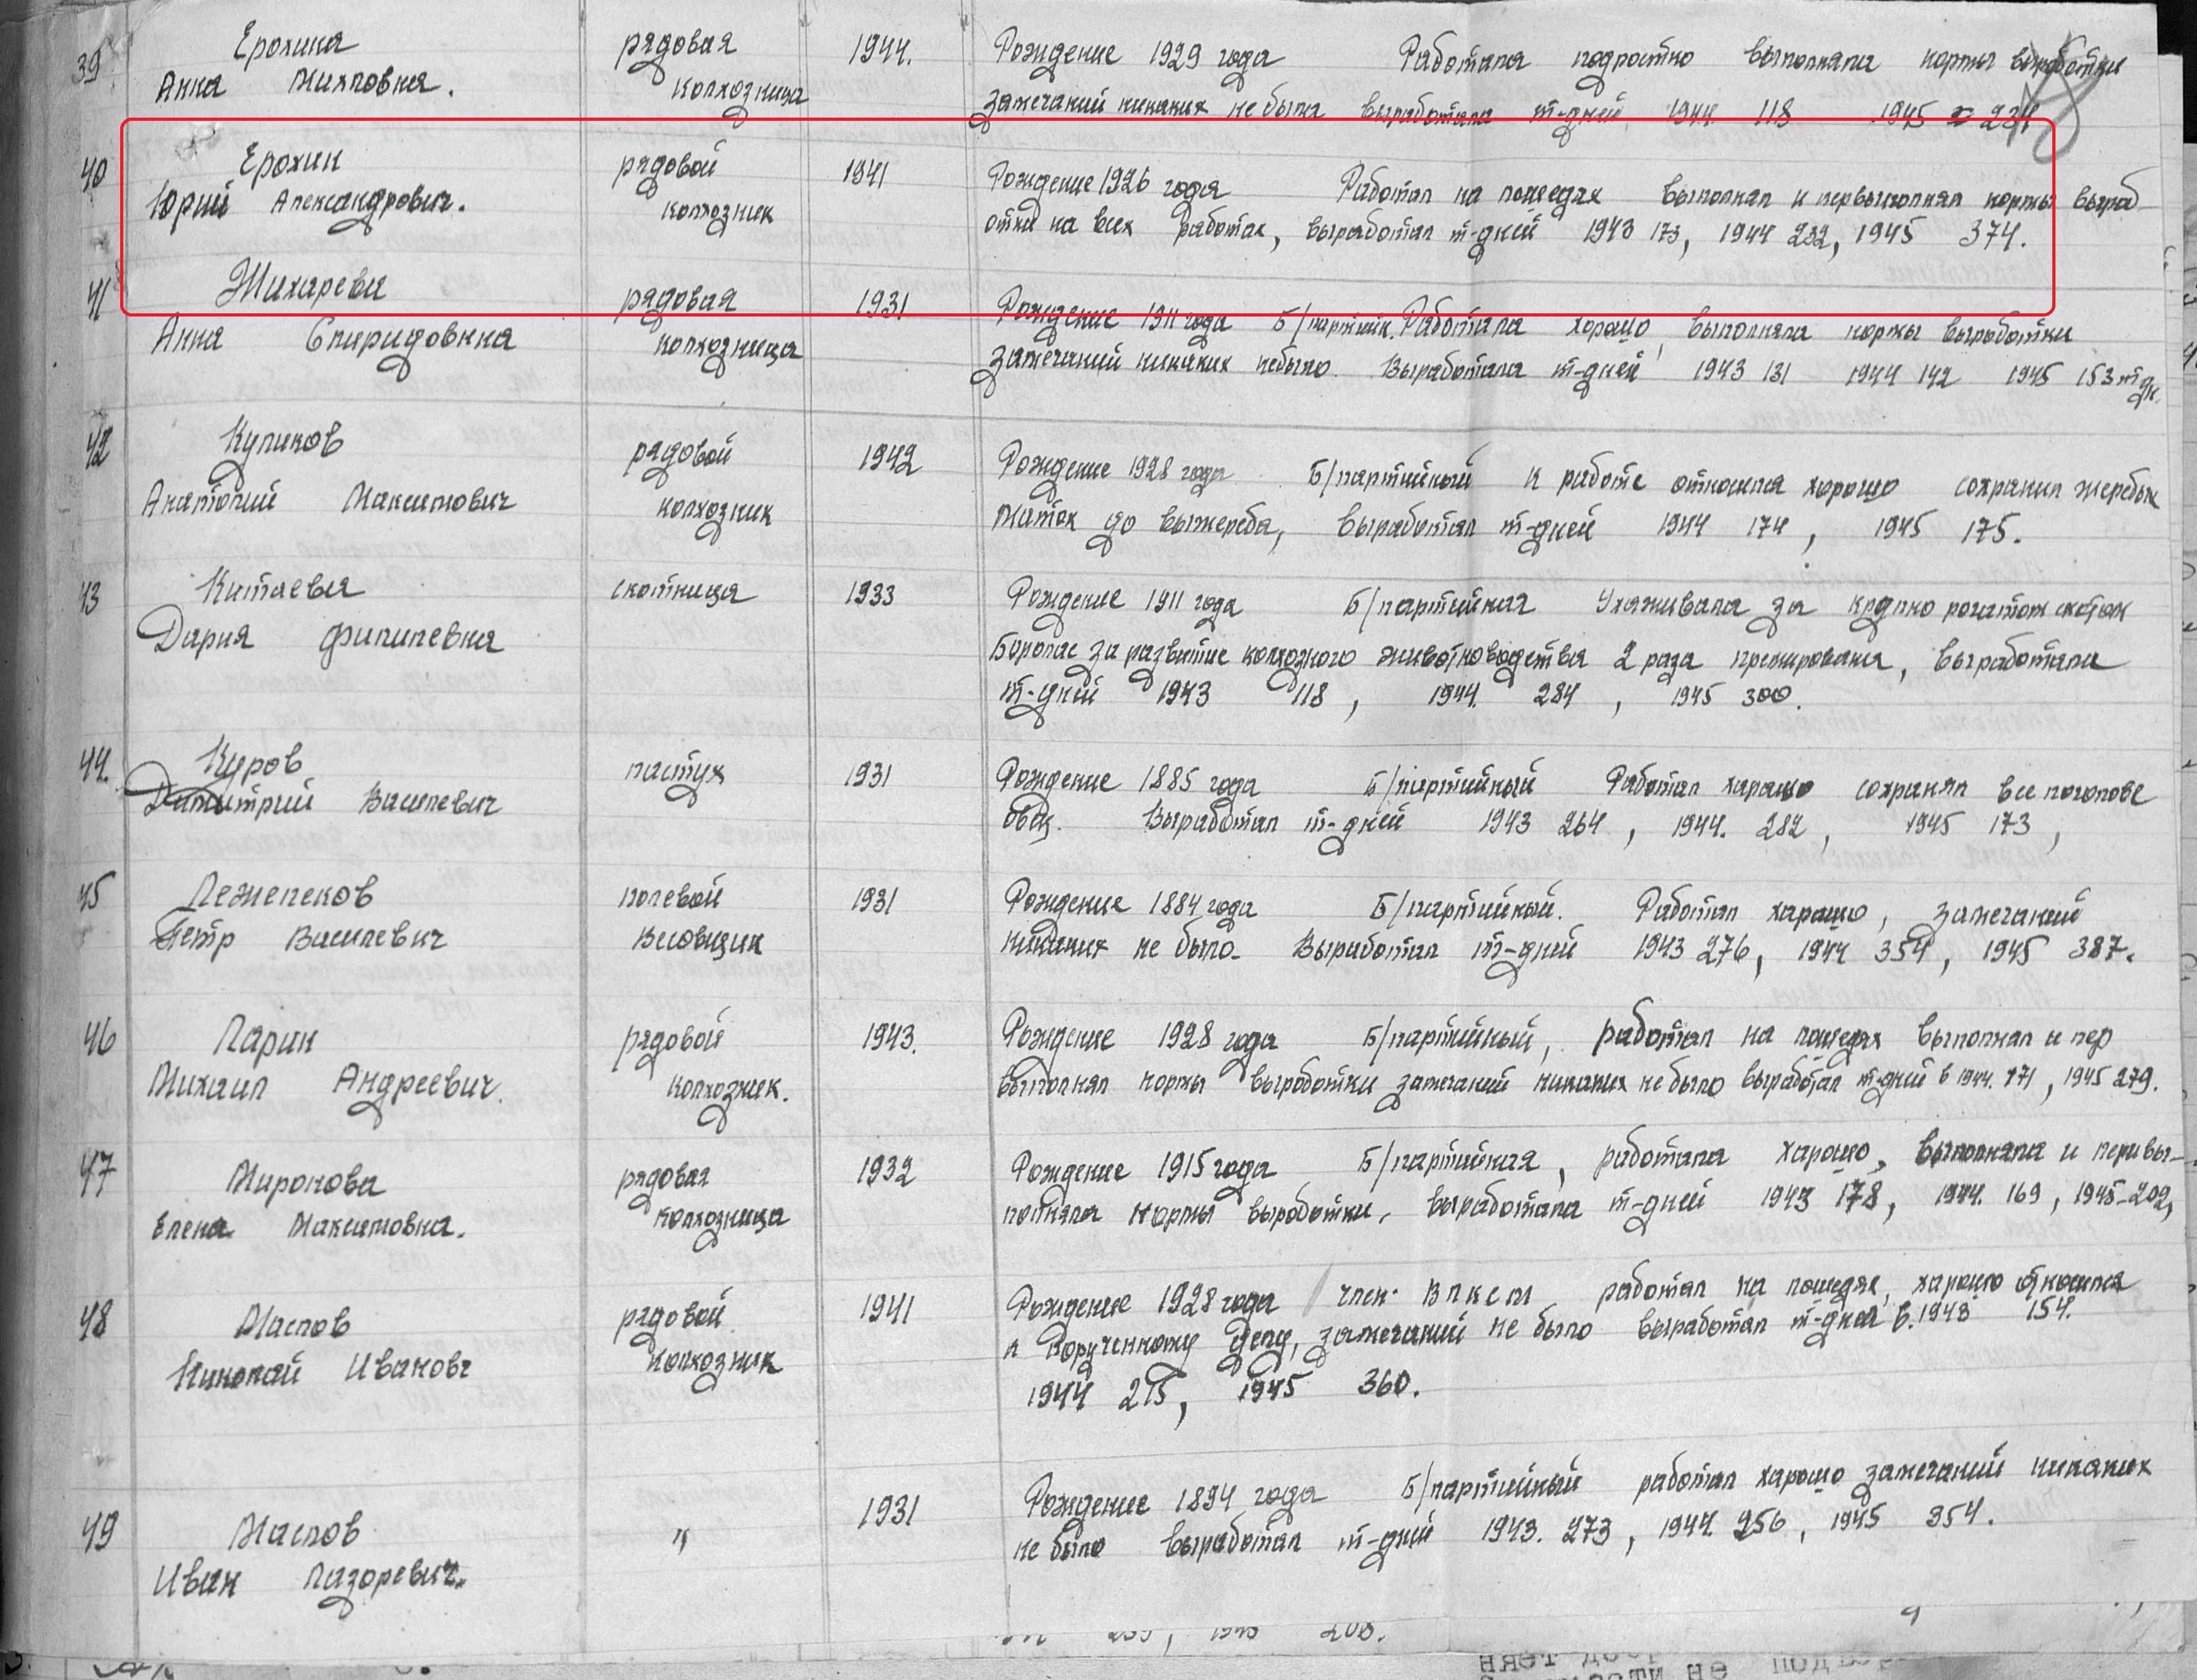 39 Ерохина рядовая 1944. Рождение 1929 года Работала подростко выполняла нормы выработки
Анна Михловна. колхозница замечаний никаких не была выработала т-дней 1944 118 1945 234
40 Ерохин рядовой 1941 Рождение 1926 года Работал на лошедях выполнял и первыполнял нормы выраб-
Юрий Александрович. колхозник отки на всех работах, выработал т-дней 1943 173, 1944 232, 1945 374.
41 Жихарева рядовая 1931 Рождение 1911 года Б/партийн. Работала хорошо, выполняла нормы выработки
Анна Спиридовна колхозница замечаний никаких небыло. Выработала т-дней 1943 131 1944 142 1945 153 тдн.
42 Куликов рядовой 1942 Рождение 1928 года Б/партийный к работе относился хорошо сохранил жеребых
Анатолий Максимович колхозник маток до выжереба, выработал т-дней 1944 174, 1945 175.
43 Китаева скотница 1933 Рождение 1911 года Б/партийная Ухаживала за крупно рогатом скотом
Дария Филипевна Боролас за развитие колхозного животноводства 2 раза премирована, выработала
т-дней 1943 118, 1944. 284, 1945 300.
44. Куров пастух 1931 Рождение 1885 года Б/партийный Работал харашо сохранял все поголове
Димитрий Василевич овец. Выработал т-дней 1943 264, 1944. 282, 1945 173,
45 Лежепеков полевой 1931 Рождение 1884 года Б/партийный. Работал харашо, замечаний
Петр Василевич весовщик никаких не было. Выработал т-дней 1943 276, 1944 354, 1945 387.
46 Ларин рядовой 1943. Рождение 1928 года Б/партийный, работал на лошедях выполнял и пер
Михаил Андреевич. колхозник. выполнял нормы выработки замечаний никаких не было выработал т-дней в 1944. 171, 1945 279.
47 Миронова рядовая 1932 Рождение 1915 года Б/партийная, работала харашо, выполняла и перивы-
Елена Максимовна. колхозница полняла нормы выработки, выработала т-дней 1943 178, 1944. 169, 1945-202,
48 Маслов рядовой 1941 Рождение 1928 года член ВЛКСМ работал на лошедях, харашо относился
Николай Иванович колхозник к порученному делу, замечаний не было выработал т-дней в.1943 154.
1944 215, 1945 360.
49 Маслов " 1931 Рождение 1894 года Б/партийный работал харашо замечаний никаких
Иван Лазоревич. не было выработал т-дней 1943. 273, 1944. 256, 1945 354.